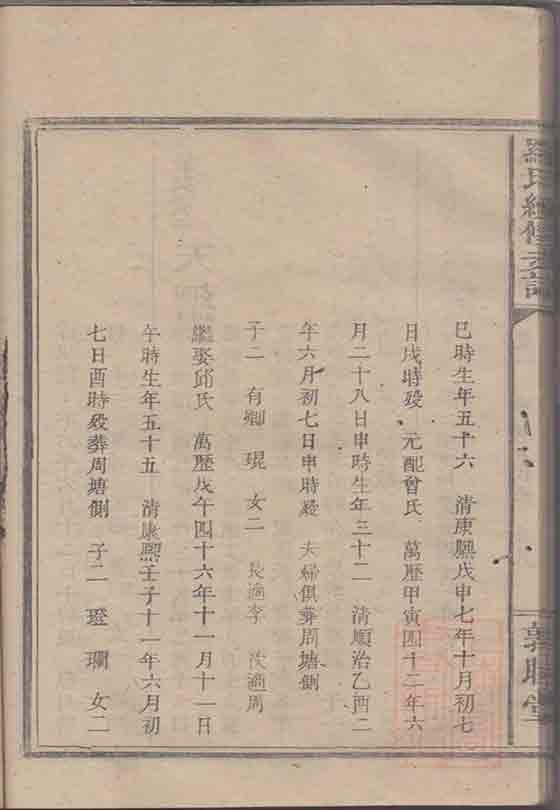 羅氏續修支譜
敦睦堂
巳時生年五十六 清康熙戊申七年十月初七
日戌時歿 元配曾氏 萬歷甲寅四十二年六
月二十八日申時生年三十二 清順治乙酉二
年六月初七日申時歿 夫婦俱葬周塘側
子二 有卿 琨 女二 長適李 次適周
繼娶邱氏 萬歷戊午四十六年十一月十一日
午時生年五十五 清康熙壬子十一年六月初
七日酉時歿葬周塘側 子二 璒 瓓 女二